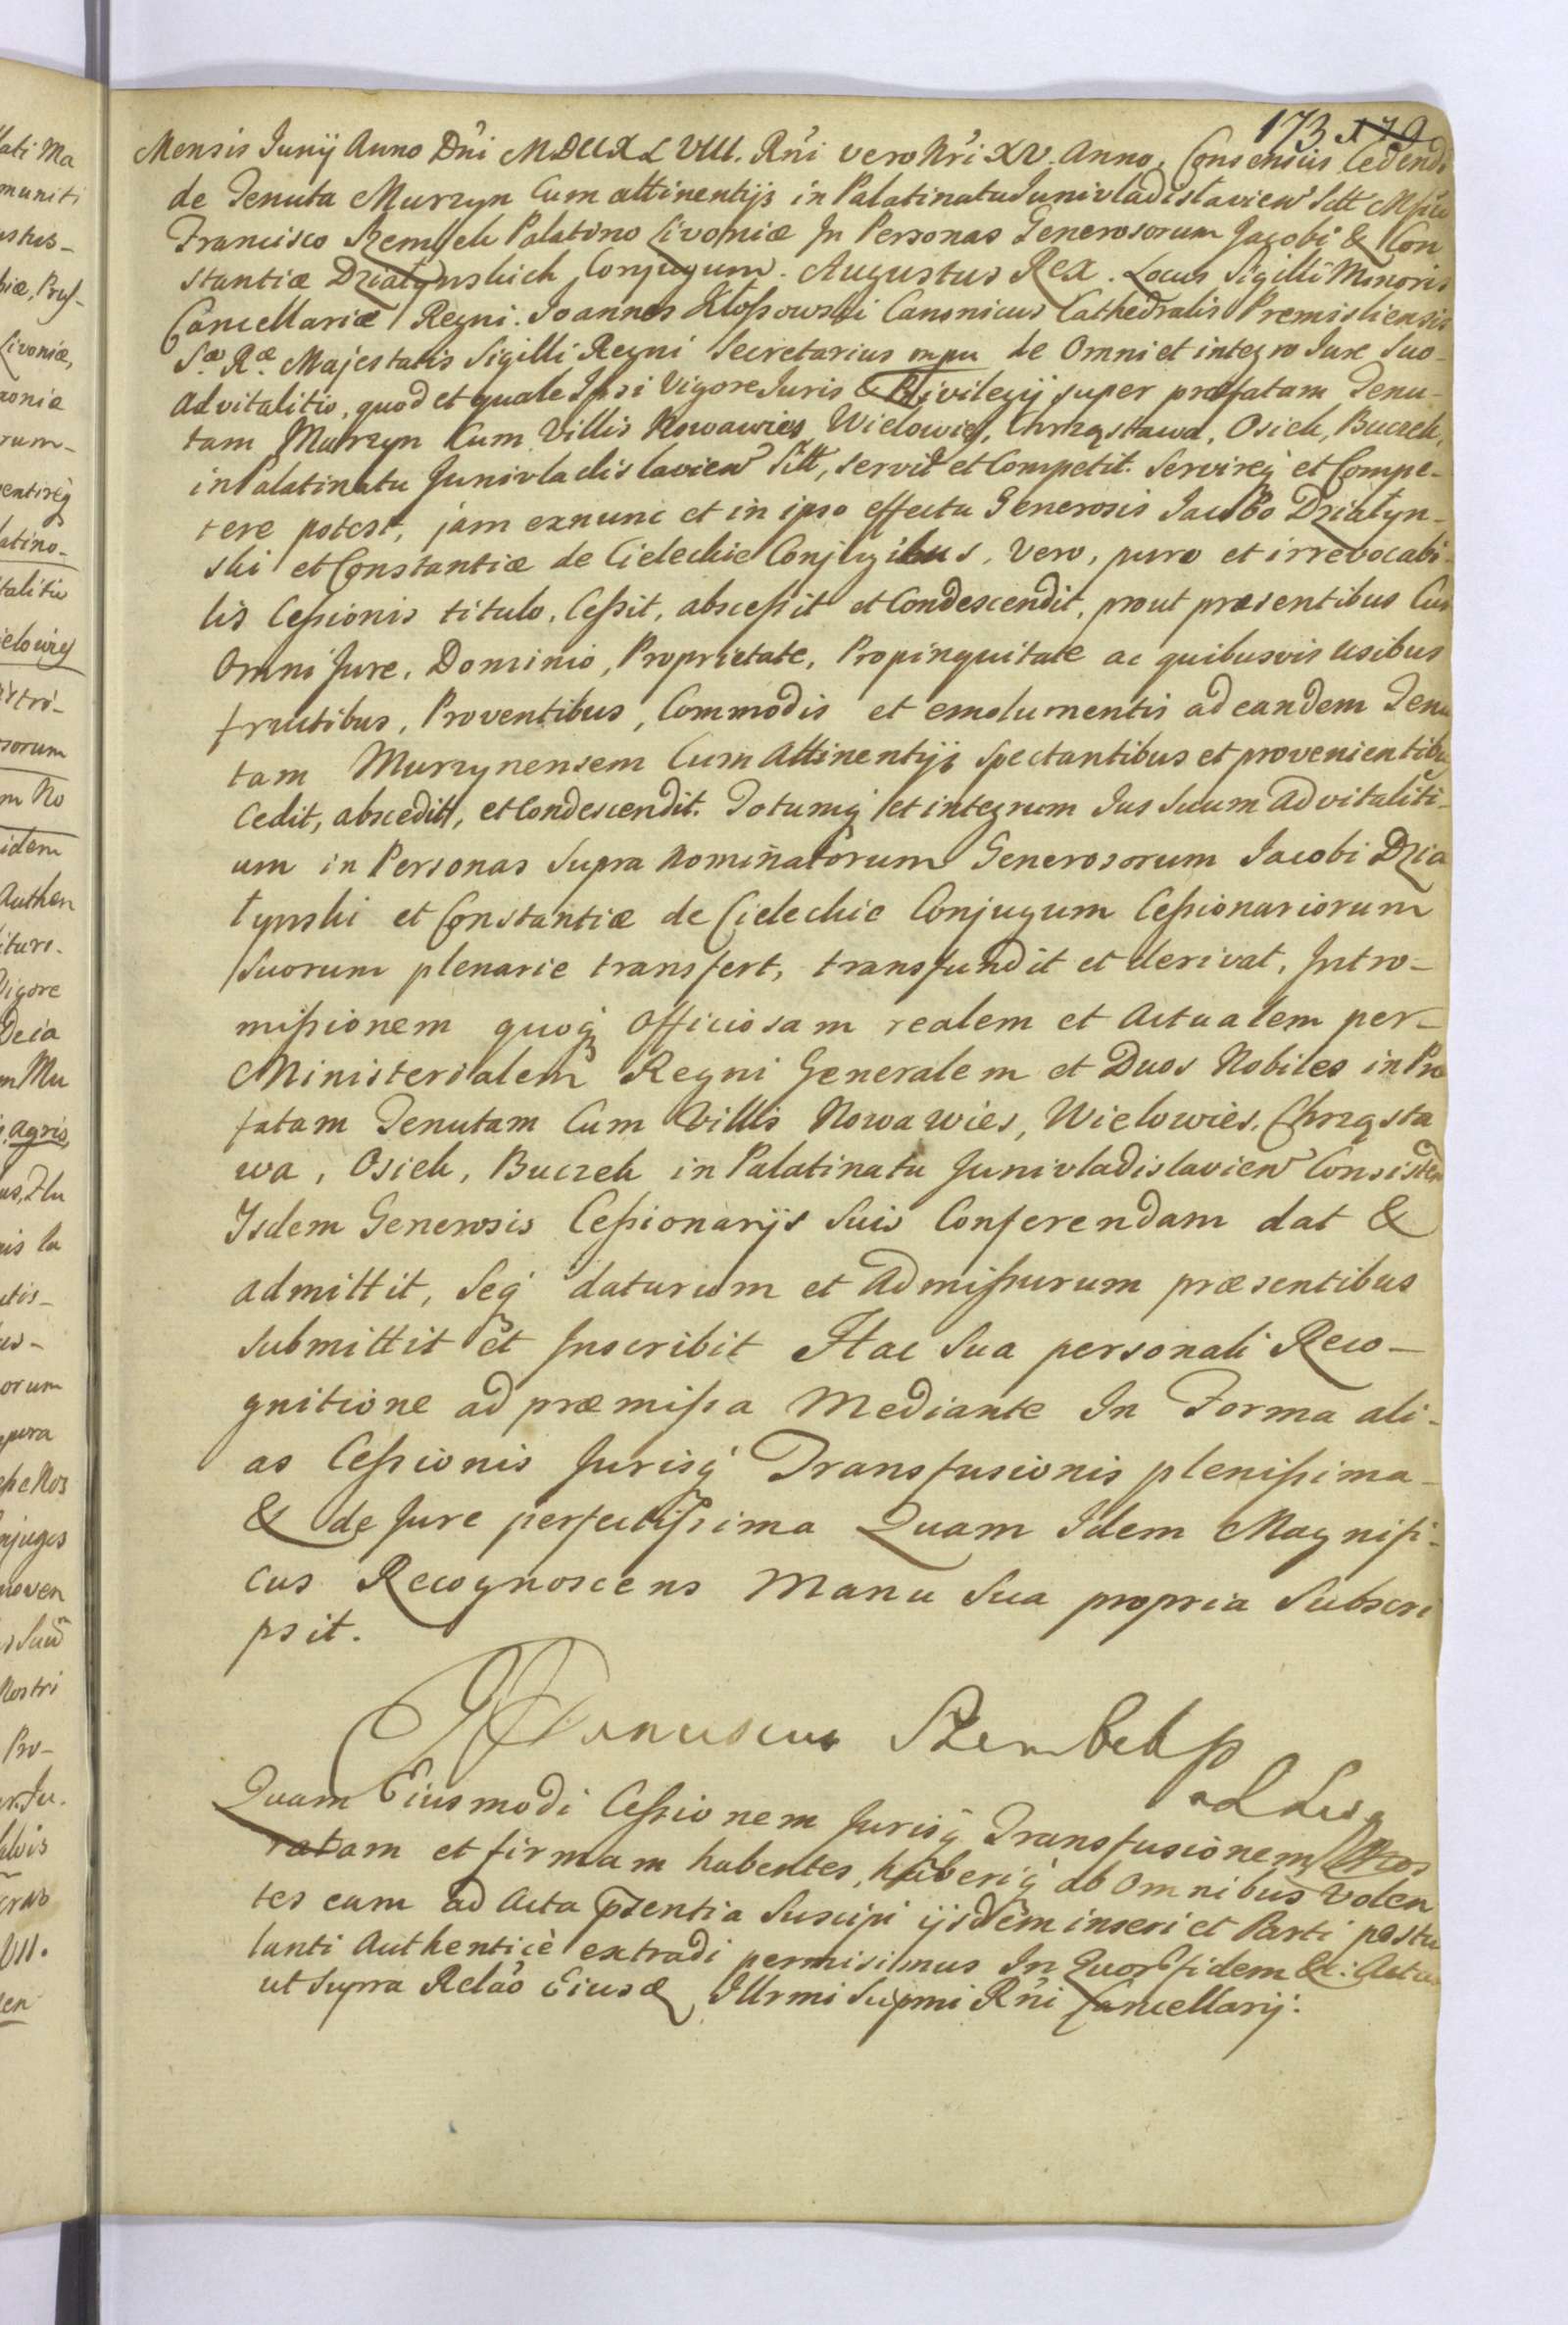 173 179
Mensis Junij Anno Dni MDCCXLVIII. Rni vero Nri XV. Anno. Consensus Cedendi
de Tenuta Murzyn Cum attinentijs in Palatinatu Junivladislavien Sitt Mfico
Francisco Szembek Palatino Livoniæ In Personas Generosorum Jacobi & Con
stantiæ Działynskich Conjugum. Augustus Rex. Locus Sigilli Minoris
Cancellariæ Regni. Joannes Kłoßowski Canonicus Cathedralis Premisliensis
Sæ Ræ Majestatis Sigilli Regni Secretarius mpu de Omni et integro Jure Suo
Advitalitio, quod et quale Ipsi Vigore Juris & Privilegij super præfatam Tenu-
tam Murzyn Cum Villis Nowawies Wielowieś, Chrząstawa, Osiek, Buczek,
in Palatinatu Junivladislavien Sitt, servit et Competit. Servireq et Compe-
tere potest, jam exnunc et in ipso effectu Generosis Jacobo Działyn-
ski et Constantiæ de Cieleckie Conjugibus, vero, puro et irrevocabi-
lis Ceßionis titulo, Ceßit, absceßit et Condescendit, prout præsentibus Cum
Omni Jure, Dominio, Proprietate, Propinquitate ac quibusvis usibus
fructibus, Proventibus, Commodis et emolumentis ad eandem Tenu
tam Murzynensem Cum Attinentijs spectantibus et provenientibus
Cedit, abscedit, et Condescendit. Totumq et integrum Jus Suum Advitaliti-
um in Personas Supra nominatorum Generosorum Jacobi Dzia
łynski et Constantiæ de Cieleckie Conjugum Ceßionariorum
Suorum plenarie transfert, transfundit et derivat, Intro-
mißionem quoq Officiosam realem et Actualem per-
Ministerialem Regni Generalem et Duos Nobiles in Præ
fatam Tenutam Cum Villis Nowawies, Wielowies, Chrząsta
wa, Osiek, Buczek in Palatinatu Junivladislavien Consisten
Isdem Generosis Ceßionarijs Suis Conferendam dat &
admittit, Seq daturum et Admißurum præsentibus
submittit et Inscribit Hac Sua personali Reco-
gnitione ad præmißa Mediante In Forma ali-
as Ceßionis Jurisq Transfusionis plenißima
& de Jure perfectißima Quam Idem Magnifi-
cus Recognoscens Manu Sua propria Subscri
psit.
Franciscus Szembek
Quam Eiusmodi Ceßionem Jurisq Transfusionem Nos
ratam et firmam habentes, haberiq ab Omnibus Volen
tes eam ad Acta pzentia Suscipi ijsdem inseri et Parti postu
lanti Authenticè extradi permisimus In Quor fidem &c: Actum
ut Supra Relao Eiusd Illrmi Supmi Rni Cancellarij.